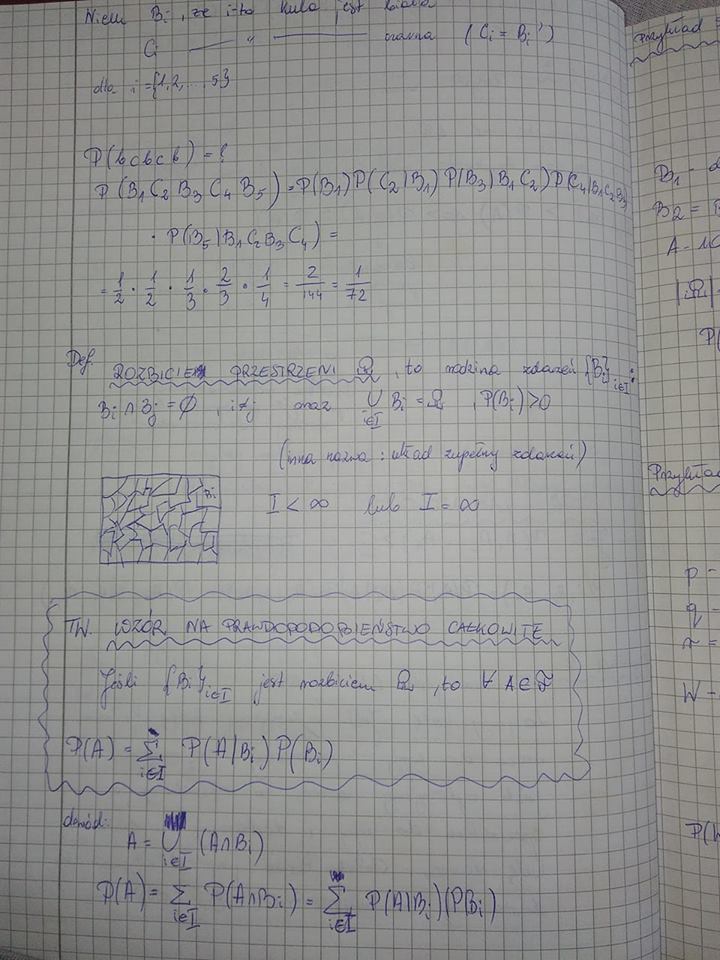 Niech Bi, że i-ta kula jest biała
Ci —— " —— czarna (Ci = Bi')
dla i = {1,2,...,5}
P(bcbcb) = ?
P(B₁C₂B₃C₄B₅) = P(B₁)P(C₂|B₁)P(B₃|B₁C₂)P(C₄|B₁C₂B₃)
· P(B₅|B₁C₂B₃C₄) =
= 1/2 · 1/2 · 1/3 · 2/3 · 1/4 = 2/144 = 1/72
Def. ROZBICIEM PRZESTRZENI Ω, to rodzina zdarzeń {Bi}i∈I:
Bi ∩ Bj = ∅, i≠j oraz ∪i∈I Bi = Ω, P(Bi)>0
(inna nazwa: układ zupełny zdarzeń)
Bi
I < ∞ lub I = ∞
TW. WZÓR NA PRAWDOPODOBIEŃSTWO CAŁKOWITE
Jeśli {Bi}i∈I jest rozbiciem Ω, to ∀ A∈F
P(A) = Σi∈I P(A|Bi)P(Bi)
dowód:
A = ∪i∈I (A∩Bi)
P(A) = Σi∈I P(A∩Bi) = Σi∈I P(A|Bi)(P(Bi)
Przykład
B₁ -
B₂ =
A -
|Ω|
P(
Przykład
p -
q -
r =
W -
P(